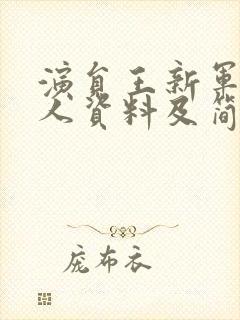 演員王新軍
人資料及簡
庞布衣